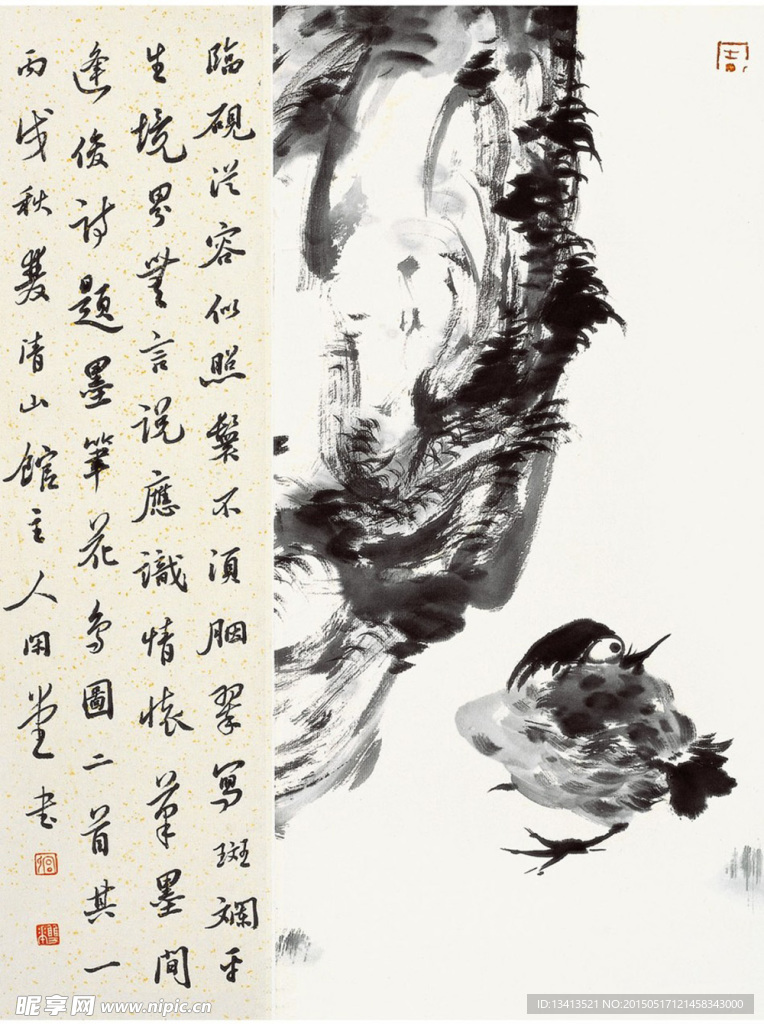 臨硯從容似照鬢不須胭翠寫斑斕平
生境界無言說應識情懷筆墨間
逢俊詩題墨筆花鳥圖二首其一
丙戌秋雙清山館主人闲堂书
昵享网 www.nipic.cn
ID:13413521 NO:20150517121458343000